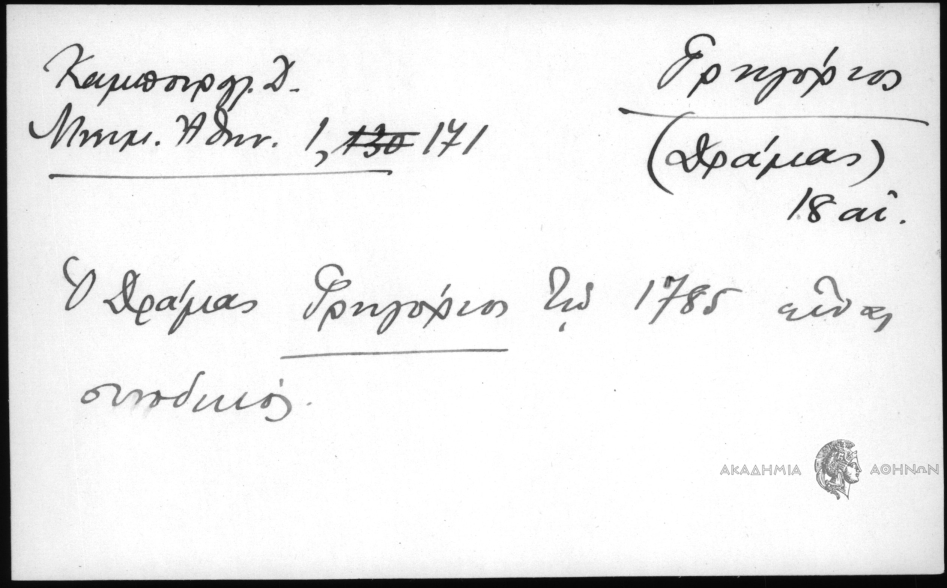 Καμπούρογλ. Δ.
Μνημ. Ἀθην. 1, 130 171
Γρηγόριος
(Δράμας)
18 αἰ.
Ὁ Δράμας Γρηγόριος τῷ 1785 εἶναι
συνοδικός.
ΑΚΑΔΗΜΙΑ ΑΘΗΝΩΝ